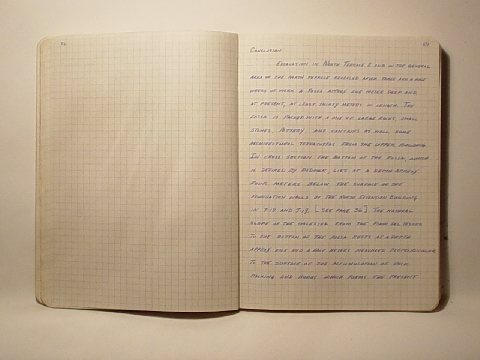 CONCLUSION
EXCAVATION IN NORTH TERRACE 2 AND IN THE GENERAL
AREA OF THE NORTH TERRACE REVEALED AFTER THREE AND A HALF
WEEKS OF WORK A FOSSA APPROX. ONE METER DEEP AND,
AT PRESENT, AT LEAST TWENTY METERS IN LENGTH. THE
FOSSA IS PACKED WITH A MIX OF LARGE ROCKS, SMALL
STONES, POTTERY, AND CONTAINS AS WELL SOME
ARCHITECTURAL TERRACOTTAS FROM THE UPPER BUILDING.
IN CROSS SECTION THE BOTTOM OF THE FOSSA, WHICH
IS DEFINED BY BEDROCK, LIES AT A DEPTH APPROX.
FOUR METERS BELOW THE SURFACE OF THE
FOUNDATION WALLS OF THE NORTH EXTENSION BUILDING
IN AND [SEE PAGE 36] THE NATURAL
SLOPE OF THE FROM THE PIANO DEL TESORO
TO THE BOTTOM OF THE FOSSA RESTS AT A DEPTH
APPROX. ONE AND A HALF METERS MEASURED PERPENDICULAR
TO THE SURFACE OF THE ACCUMULATION OF
AND HUMUS WHICH FORMS THE PRESENT